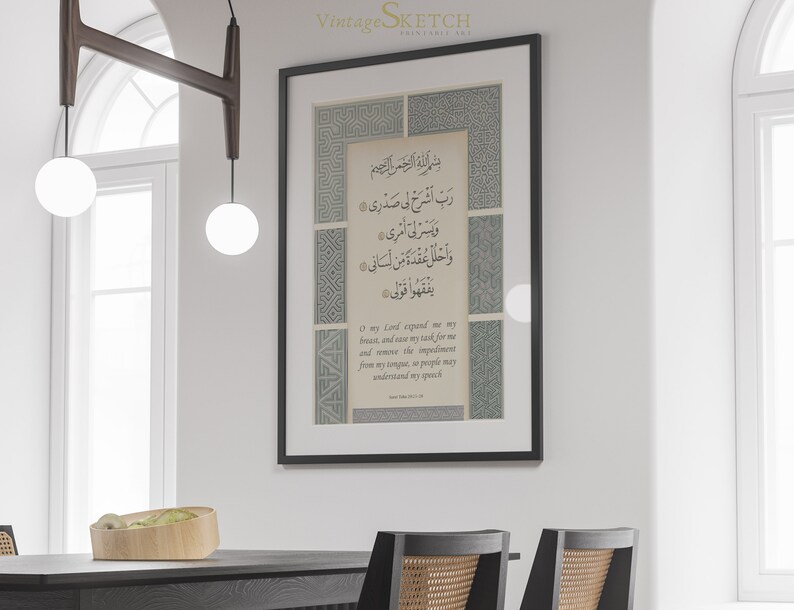 VintageSKETCH
PRINTABLE ART
بِسْمِ ٱللَّهِ ٱلرَّحْمَٰنِ ٱلرَّحِيمِ
رَبِّ ٱشْرَحْ لِى صَدْرِى
وَيَسِّرْ لِىٓ أَمْرِى
وَٱحْلُلْ عُقْدَةً مِّن لِّسَانِى
يَفْقَهُوا۟ قَوْلِى
O my Lord expand me my
breast, and ease my task for me
and remove the impediment
from my tongue, so people may
understand my speech